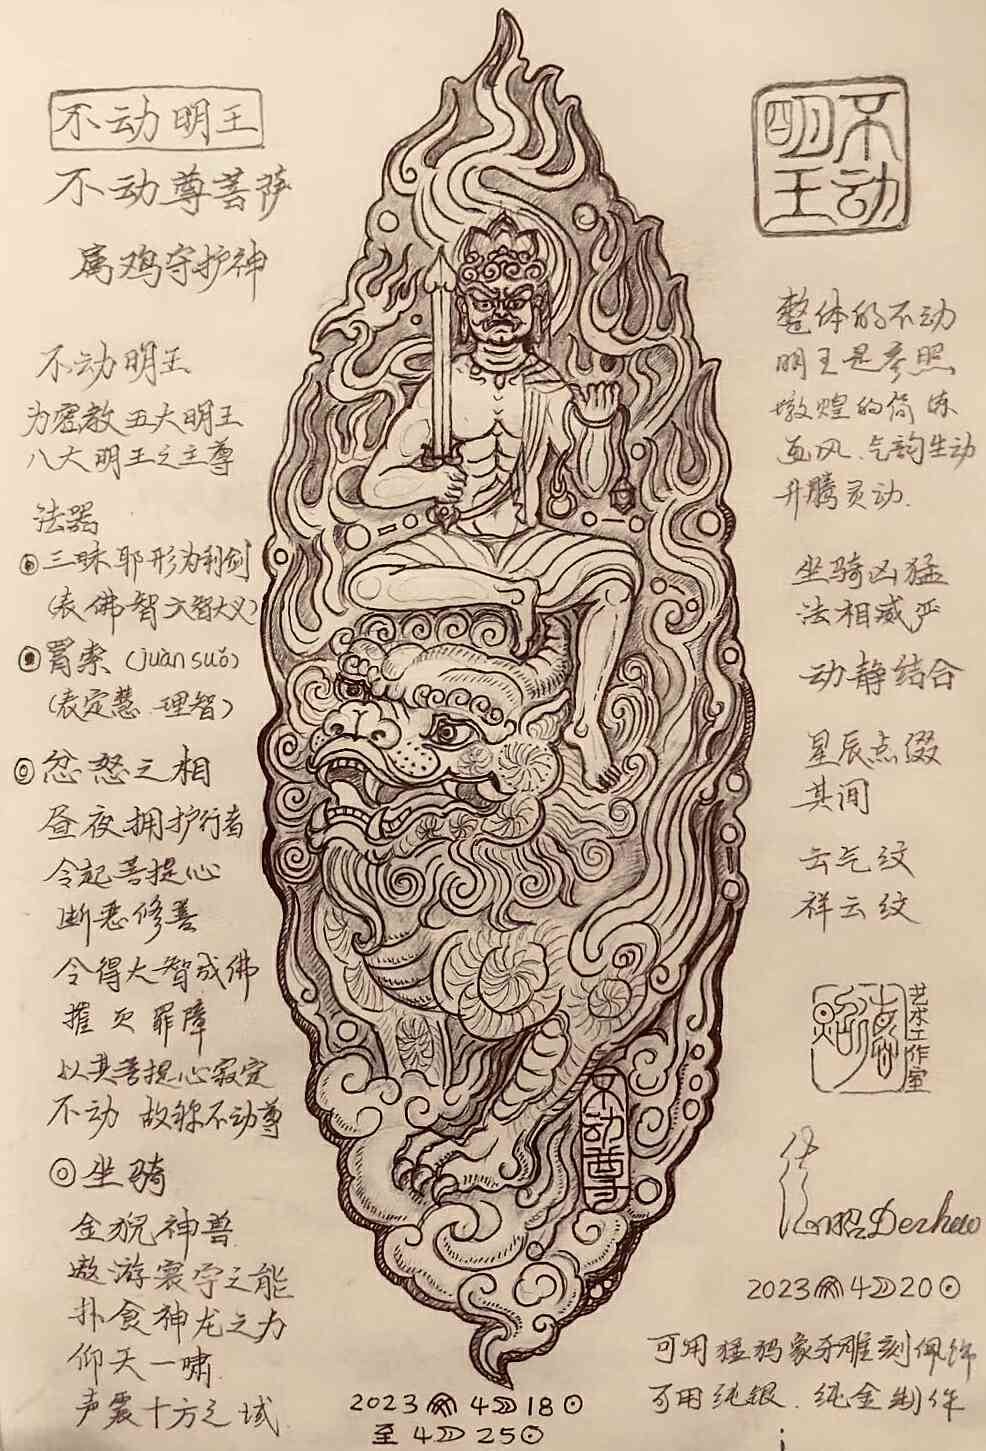 不动明王
不动尊菩萨
属鸡守护神
不动明王
为密教五大明王
八大明王之主尊
法器
三昧耶形为利剑
(表佛智六智大义)
罥索 (juàn suǒ)
(表定慧、理智)
忿怒之相
昼夜拥护行者
令起菩提心
断恶修善
令得大智成佛
摧灭罪障
以其菩提心寂定
不动 故称不动尊
坐骑
金猊神兽
遨游寰宇之能
扑食神龙之力
仰天一啸
声震十方之域
不动明王
整体的不动
明王是参照
敦煌的简练
画风、气韵生动
升腾灵动.
坐骑凶猛
法相威严
动静结合
星辰点缀
其间
云气纹
祥云纹
艺术工作室
Dezhao
2023 4 20
可用猛犸象牙雕刻佩饰
可用纯银、纯金制作
不动尊
2023 4 18
至 4 25